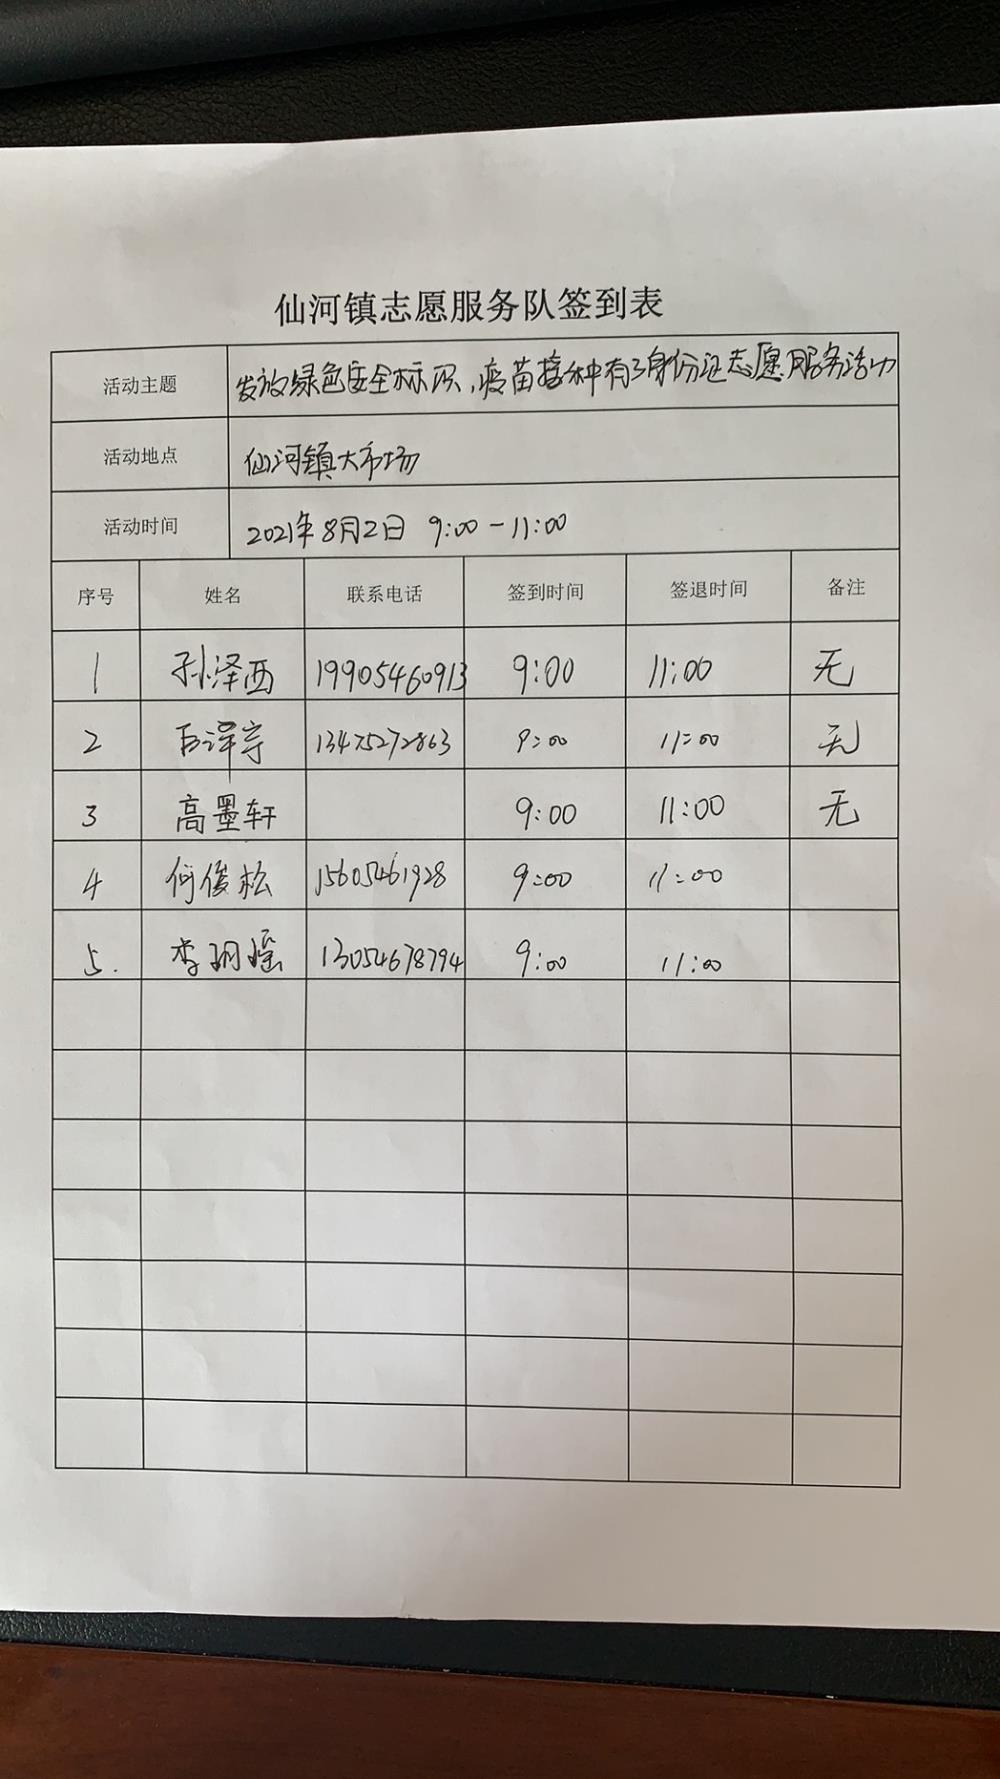 仙河镇志愿服务队签到表
活动主题 发放绿色安全标识,疫苗接种有了身份证志愿服务活动
活动地点 仙河镇大市场
活动时间 2021年8月2日 9:00-11:00
序号 姓名 联系电话 签到时间 签退时间 备注
1 孙泽西 19905460913 9:00 11:00 无
2 泽宇 13475272863 9:00 11:00 无
3 高墨轩 9:00 11:00 无
4 何俊松 15605461928 9:00 11:00
5. 李玥瑶 13054678794 9:00 11:00